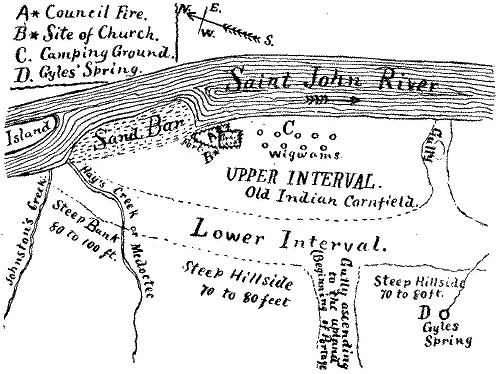 A* Council Fire.
B* Site of Church.
C. Camping Ground.
D. Gyles' Spring.
N.
E.
W.
S.
Saint John River
Island
Sand Bar
Fort
A*
B*
C
Wigwams
Gully
UPPER INTERVAL.
Old Indian Cornfield.
Johnston's Creek.
Hay's Creek or Medoctec
Steep Bank
80 to 100 ft.
Lower Interval.
Steep Hillside
70 to 80 feet
Gully ascending
to the upland
(Beginning of Portage)
Steep Hillside
70 to 80 ft.
D
Gyles
Spring